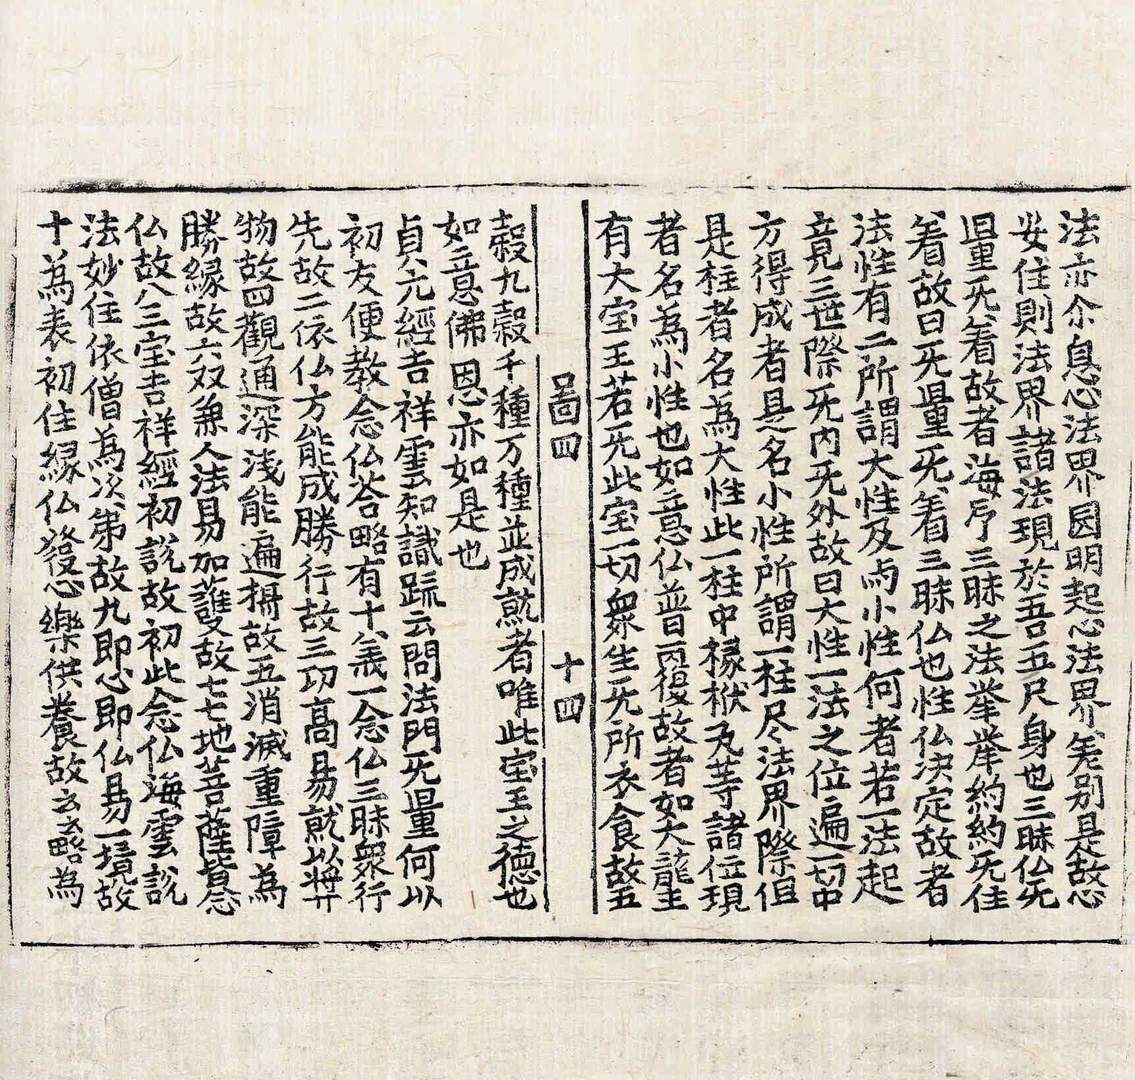 法亦尒息心法界圎明起心法界差别是故心
安住則法界諸法現於吾五尺身也三昧仏无
量无着故者海印三昧之法挙挙約約无住
着故曰无量无着三昧仏也性仏决定故者
法性有二所謂大性及与小性何者若一法起
竟三世際无内无外故曰大性一法之位遍一切中
方得成者是名小性所謂一柱尽法界際但
是柱者名為大性此一柱中椽栿及䒭諸位現
者名為小性也如意仏普覆故者如大龍王
有大宝王若无此宝一切衆生无所衣食故五
啚四　十四
穀九穀千種万種並成就者唯此宝王之德也
如意佛恩亦如是也
貞元經吉祥雲知識䟽云問法門无量何以
初友便教念仏荅略有十義一念仏三昧衆行
先故二依仏方能成勝行故三功高易就以將廾
物故四觀通深浅能遍攝故五消滅重障為
勝緣故六双兼人法易加護故七七地菩薩皆念
仏故八三宝吉祥經初說故初此念仏海雲說
法妙住依僧為次第故九即心即仏易一境故
十為表初住縁仏發心樂供養故玄略為